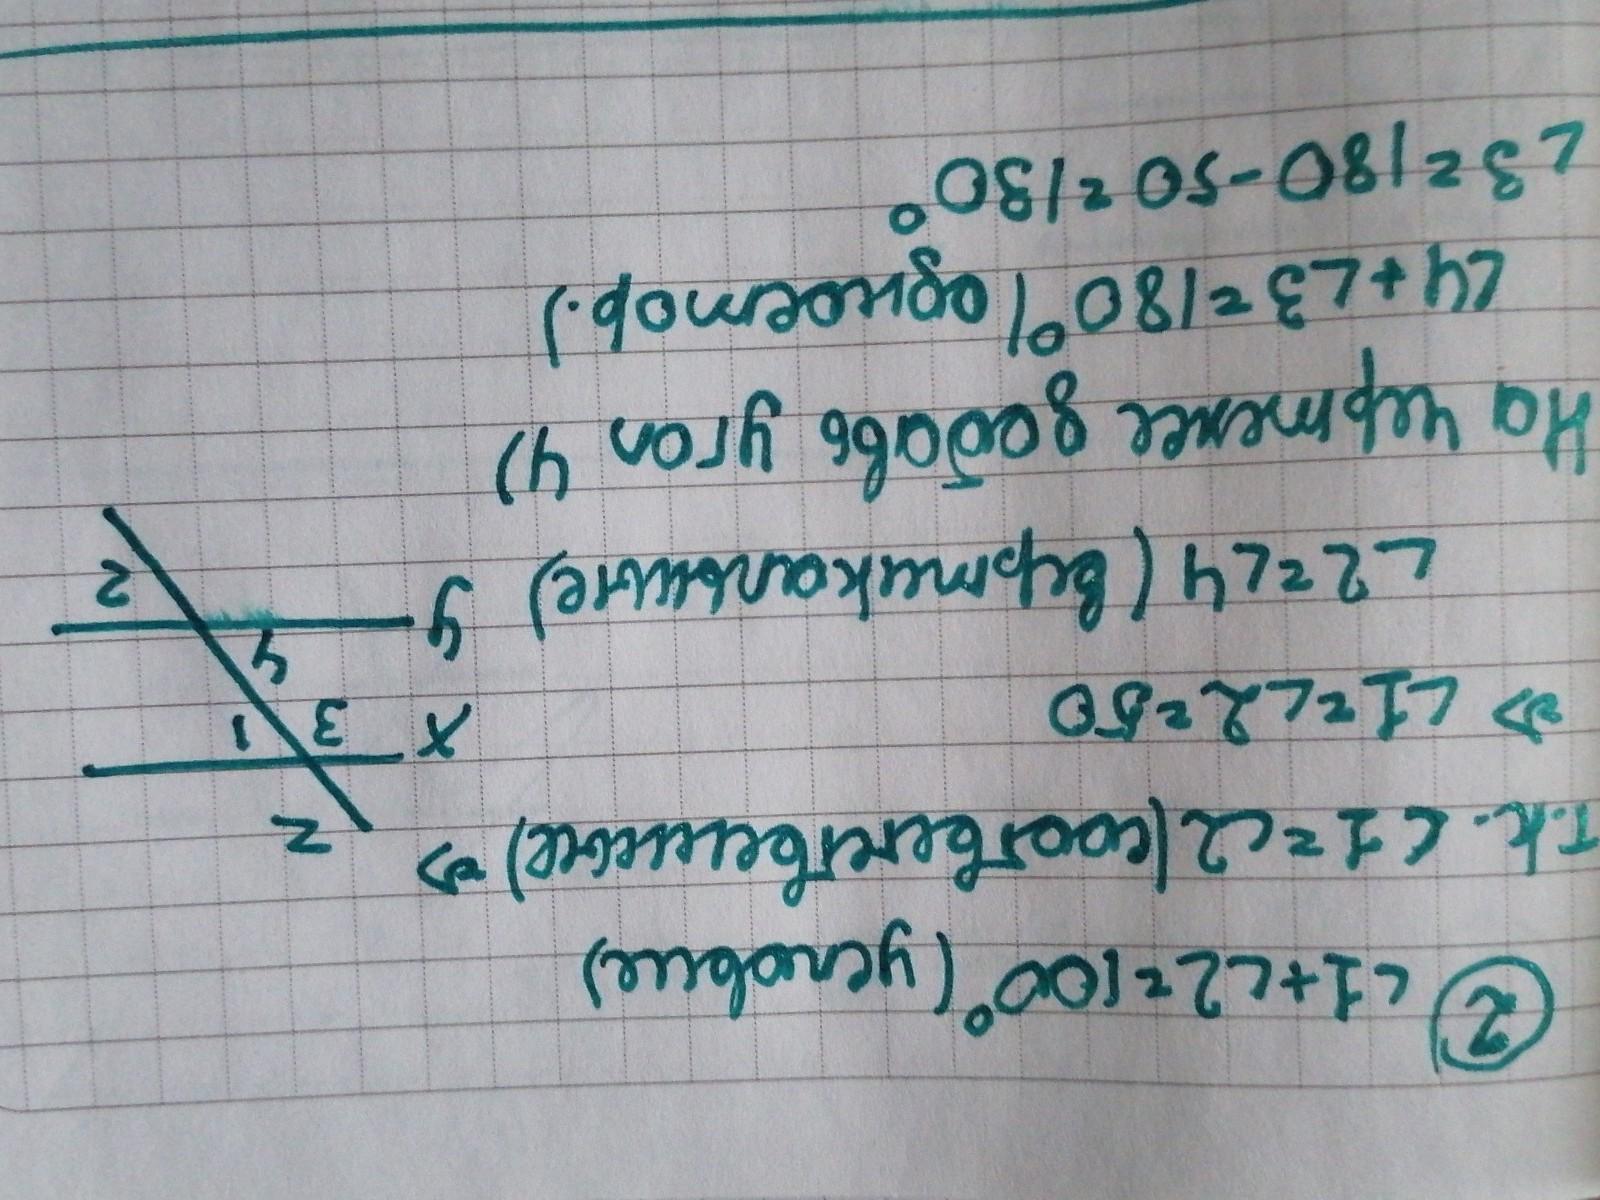 2 ∠1+∠2=100° (условие)
Т.к. ∠1=∠2 (соответственные) =>
=> ∠1=∠2=50
∠2=∠4 (вертикальные)
На чертеже добавь угол 4)
∠4+∠3=180° (одностор.)
∠3=180-50=130°
z
x
1 3
4
y
2